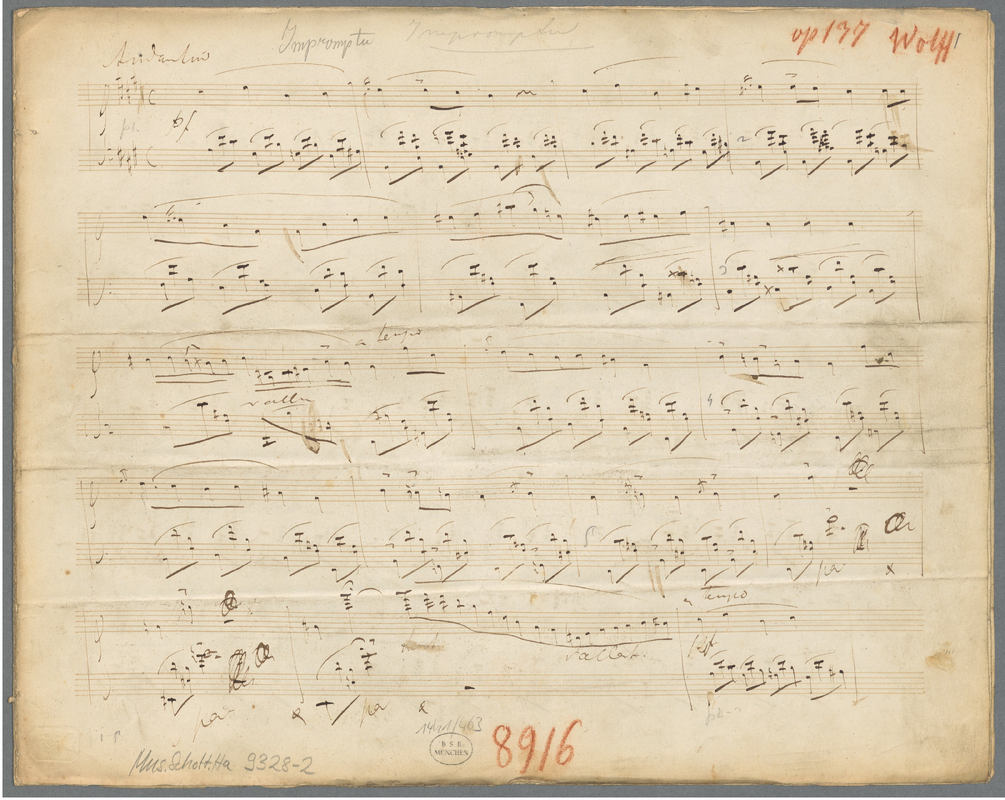 Impromptu Impromptu op 137 Wolff
Andantino
C
pf
C
a tempo
rall
a tempo
rallent.
14/11/463
B S B
MÜNCHEN
8916
Mus.Schott.Ha 9328-2